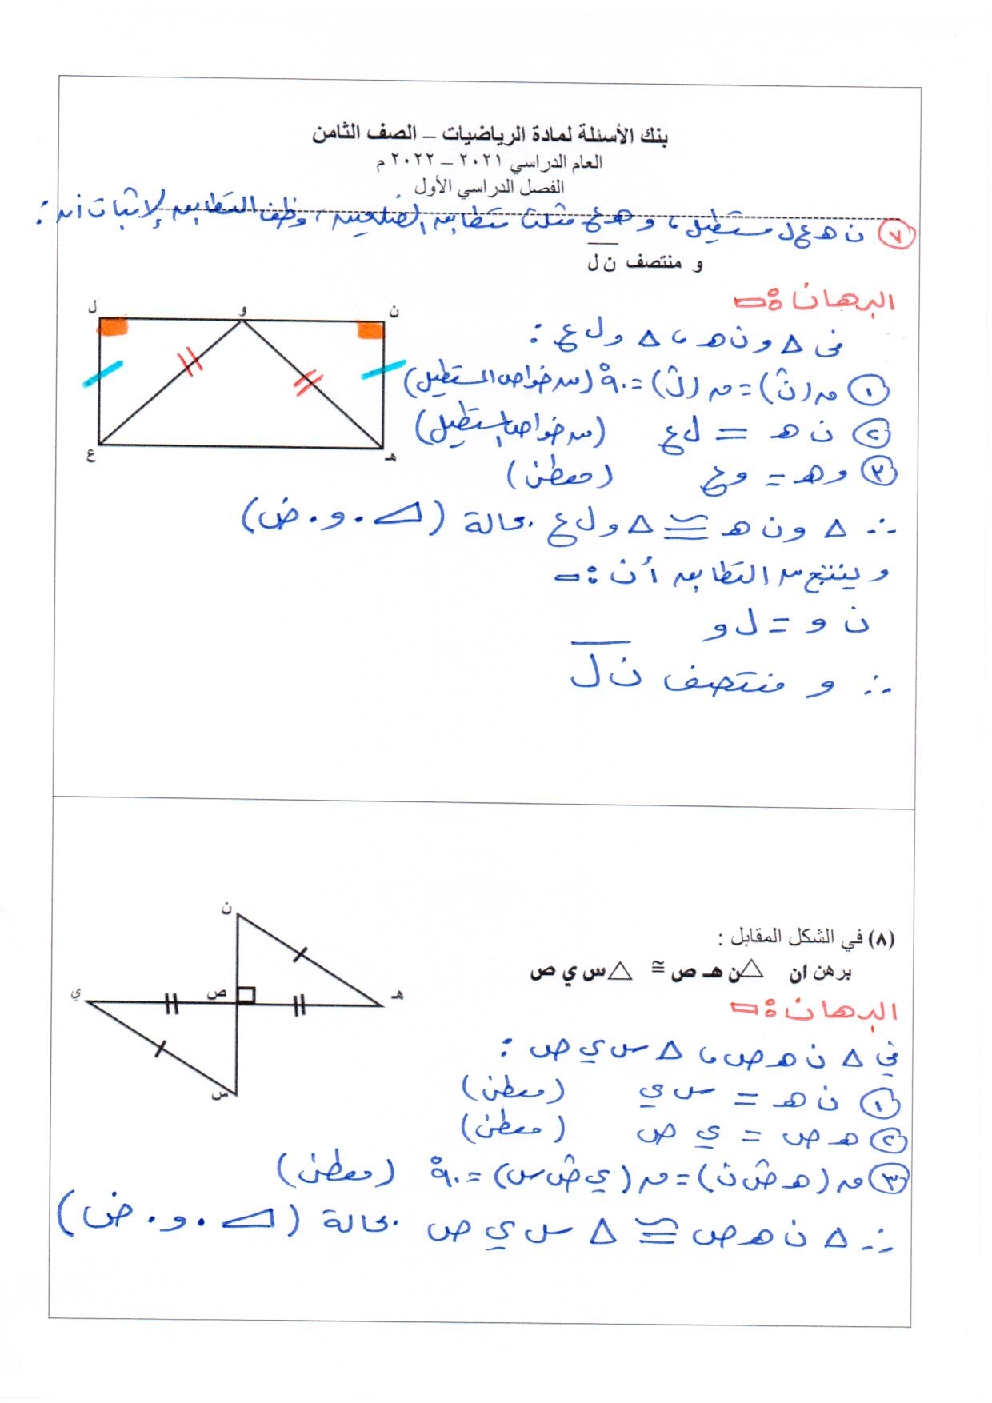 بنك الأسئلة لمادة الرياضيات – الصف الثامن
العام الدراسي ٢٠٢١ – ٢٠٢٢ م
الفصل الدراسي الأول
٧ ن هـ ع ل مستطيل ، و هـ ع مثلث متطابق الضلعين ، وظف التطابق لإثبات أن :
و منتصف ن ل
البرهان :-
في △ و ن هـ ، △ و ل ع :
١ ق (ن̂) = ق (ل̂) = ٩٠° (من خواص المستطيل)
٢ ن هـ = ل ع (من خواص المستطيل)
٣ و هـ = و ع (معطى)
∴ △ و ن هـ ≅ △ و ل ع بحالة (⊿ . و . ض)
و ينتج من التطابق أن :-
ن و = ل و
∴ و منتصف ن ل
ل
و
ن
ع
هـ
(٨) في الشكل المقابل :
برهن ان △ن هـ ص ≅ △س ي ص
البرهان :-
في △ ن هـ ص ، △ س ي ص :
١ ن هـ = س ي (معطى)
٢ هـ ص = ي ص (معطى)
٣ ق (هـ ص̂ ن) = ق (ي ص̂ س) = ٩٠° (معطى)
∴ △ ن هـ ص ≅ △ س ي ص بحالة (⊿ . و . ض)
ن
ي
ص
هـ
س